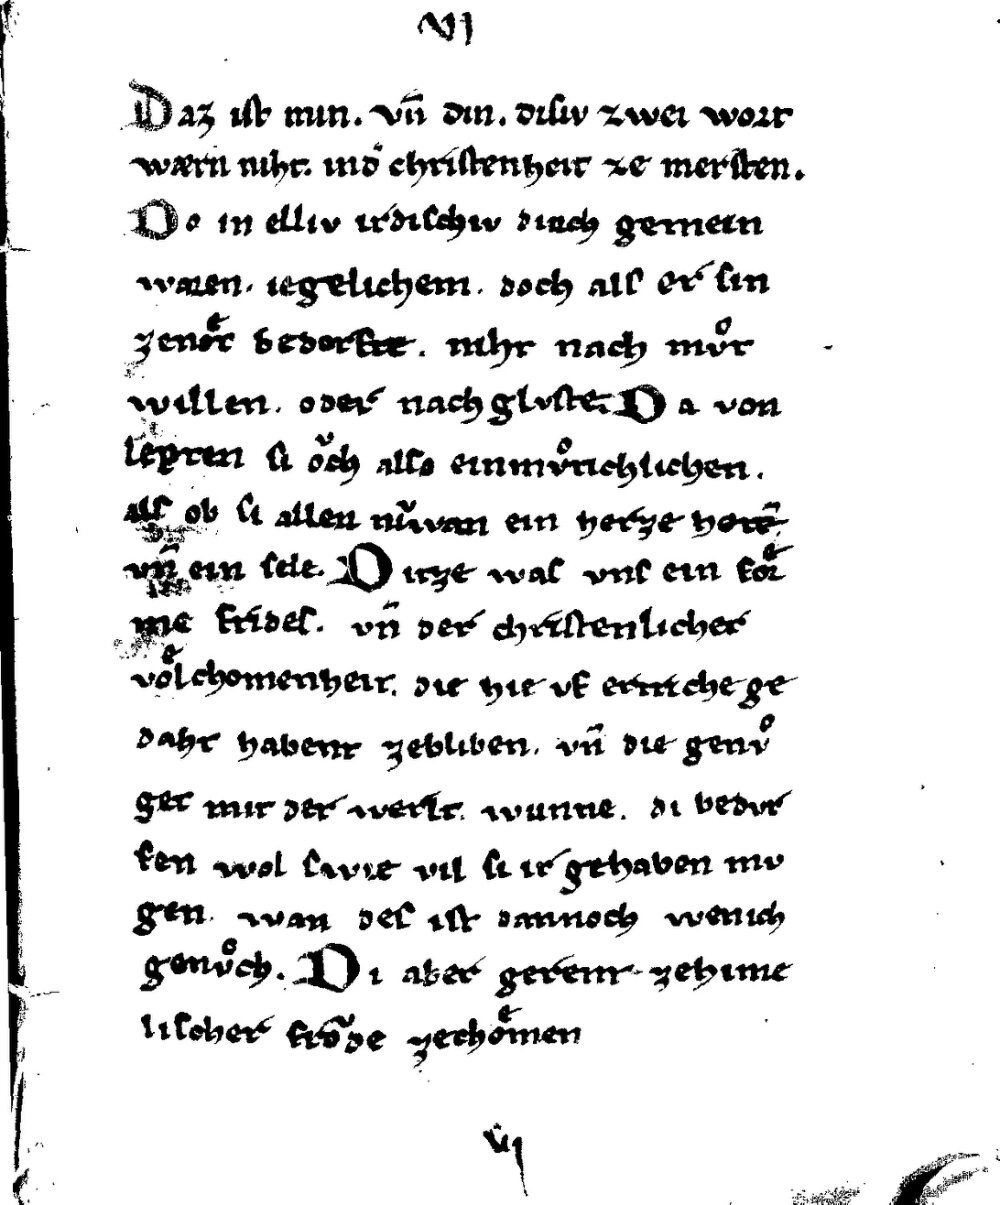 VI
Daz ist min. vn̄ din. disiv zwei wort
wærn niht. ind̕ christenheit ze mersten.
Do in elliv irdischiv dinch gemein
waren. iegelichem. doch als er sin
zenoͤt bedorfte. niht nach muͦt
willen. oder nach glvste. Da von
lepten si oͮch also einmvͦtichlichen.
als ob si allen nuͮwan ein herze heten̄
vn̄ ein sele. Ditze was vns ein foͤr
me frides. vn̄ der christenlicher
voͤlchomenheit. die hie vf ertriche ge
daht habent zebliben. vn̄ die genvͦ
get mit der werlt. wunne. di bedvr
fen wol swie vil si ir gehaben mv
gen. wan des ist dannoch wenich
genvͦch. Di aber gerent zehime
lischer froͮde zechoͤmen
vi